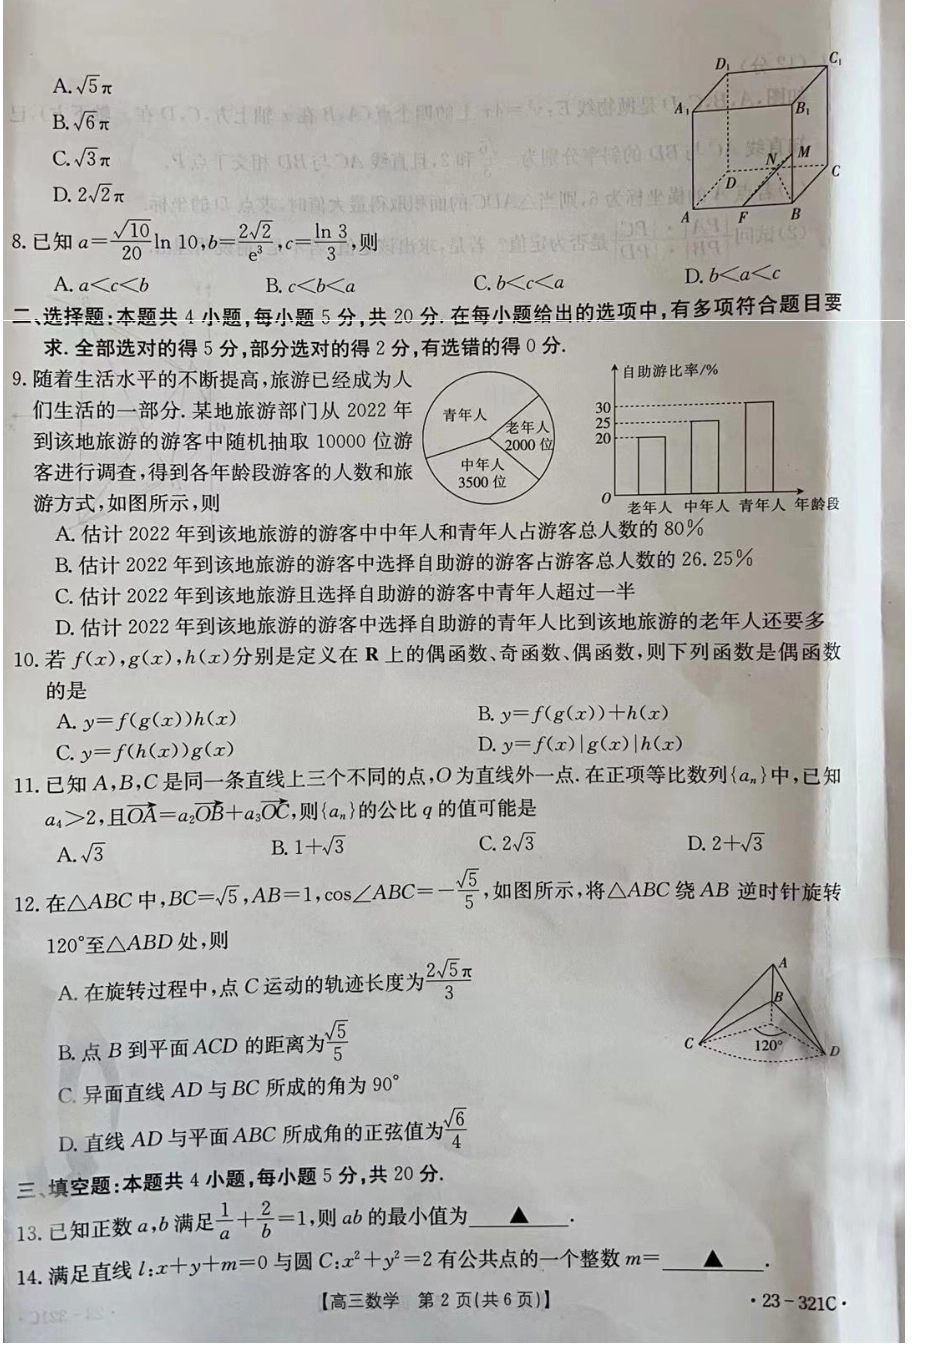 A. √5π
B. √6π
C. √3π
D. 2√2π
D₁
C₁
A₁
B₁
N
M
D
C
A
F
B
8. 已知 a=√10/20 ln 10,b=2√2/e³,c=ln 3/3,则
A. a<c<b B. c<b<a C. b<c<a D. b<a<c
二、选择题:本题共 4 小题,每小题 5 分,共 20 分. 在每小题给出的选项中,有多项符合题目要
求. 全部选对的得 5 分,部分选对的得 2 分,有选错的得 0 分.
9. 随着生活水平的不断提高,旅游已经成为人
们生活的一部分. 某地旅游部门从 2022 年
到该地旅游的游客中随机抽取 10000 位游
客进行调查,得到各年龄段游客的人数和旅
游方式,如图所示,则
青年人
老年人
2000 位
中年人
3500 位
自助游比率/%
30
25
20
O
老年人 中年人 青年人 年龄段
A. 估计 2022 年到该地旅游的游客中中年人和青年人占游客总人数的 80%
B. 估计 2022 年到该地旅游的游客中选择自助游的游客占游客总人数的 26.25%
C. 估计 2022 年到该地旅游且选择自助游的游客中青年人超过一半
D. 估计 2022 年到该地旅游的游客中选择自助游的青年人比到该地旅游的老年人还要多
10. 若 f(x),g(x),h(x)分别是定义在 R 上的偶函数、奇函数、偶函数,则下列函数是偶函数
的是
A. y=f(g(x))h(x) B. y=f(g(x))+h(x)
C. y=f(h(x))g(x) D. y=f(x)|g(x)|h(x)
11. 已知 A,B,C 是同一条直线上三个不同的点,O 为直线外一点. 在正项等比数列{aₙ}中,已知
a₄>2,且OA→=a₂OB→+a₃OC→,则{aₙ}的公比 q 的值可能是
A. √3 B. 1+√3 C. 2√3 D. 2+√3
12. 在△ABC 中,BC=√5,AB=1,cos∠ABC=-√5/5,如图所示,将△ABC 绕 AB 逆时针旋转
120°至△ABD 处,则
A. 在旋转过程中,点 C 运动的轨迹长度为2√5π/3
B. 点 B 到平面 ACD 的距离为√5/5
C. 异面直线 AD 与 BC 所成的角为 90°
D. 直线 AD 与平面 ABC 所成角的正弦值为√6/4
A
B
C
120°
D
三、填空题:本题共 4 小题,每小题 5 分,共 20 分.
13. 已知正数 a,b 满足1/a+2/b=1,则 ab 的最小值为 ▲ .
14. 满足直线 l:x+y+m=0 与圆 C:x²+y²=2 有公共点的一个整数 m= ▲ .
【高三数学 第 2 页(共 6 页)】
·23-321C·